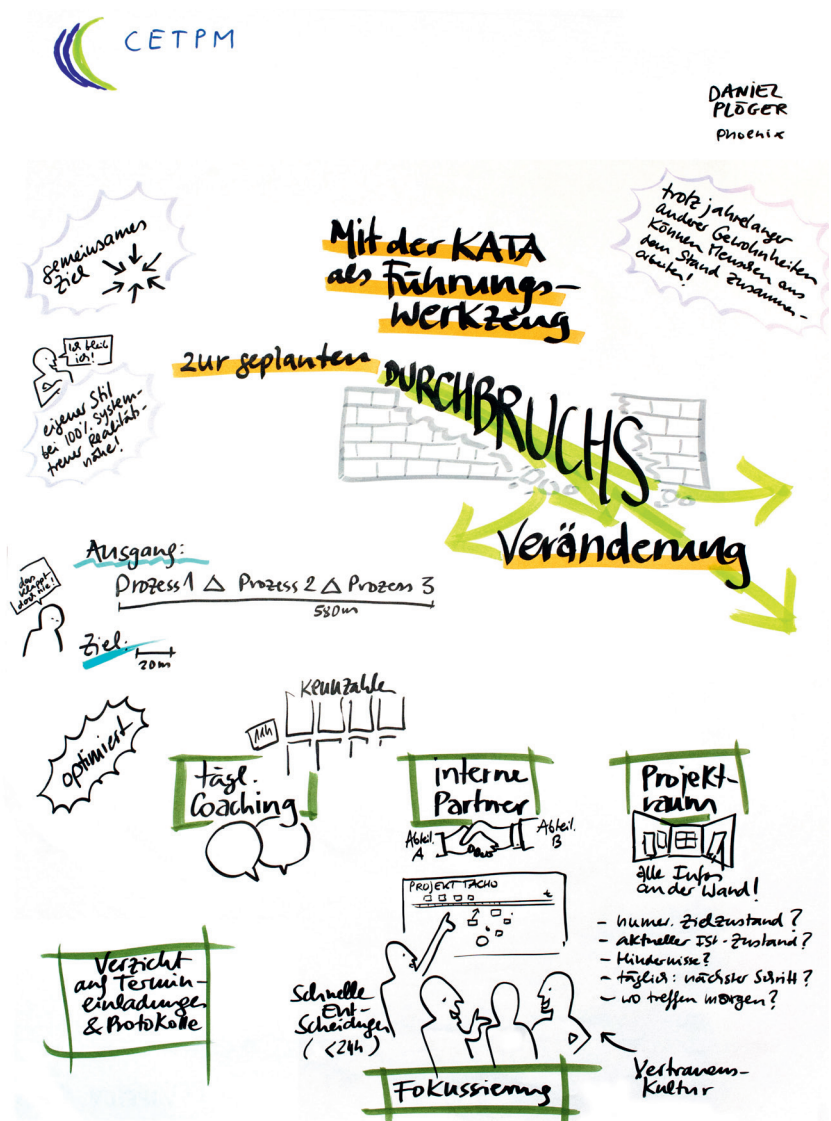 CETPM
DANIEL
PLÖGER
Phoenix
gemeinsames
Ziel
trotz jahrelanger
anderer Gewohnheiten
können Menschen aus
dem Stand zusammen-
arbeiten!
Mit der KATA
als Führungs-
werkzeug
zur geplanten
DURCHBRUCHS
Veränderung
Ich bleib
ich!
eigener Stil
bei 100% System-
treuer Realitäts-
nähe!
Ausgang:
Prozess 1 △ Prozess 2 △ Prozess 3
580m
das
klappt
doch nie!
Ziel:
20m
optimiert
Kennzahlen
11h
tägl.
Coaching
interne
Partner
Abteil.
A
Abteil.
B
Projekt-
raum
alle Infos
an der Wand!
- numer. Zielzustand?
- aktueller IST-Zustand?
- Hindernisse?
- täglich: nächster Schritt?
- wo treffen morgen?
PROJEKT TACHO
Verzicht
auf Termin-
einladungen
& Protokolle
Schnelle
Ent-
scheidungen
(<24h)
Vertrauens-
Kultur
Fokussierung